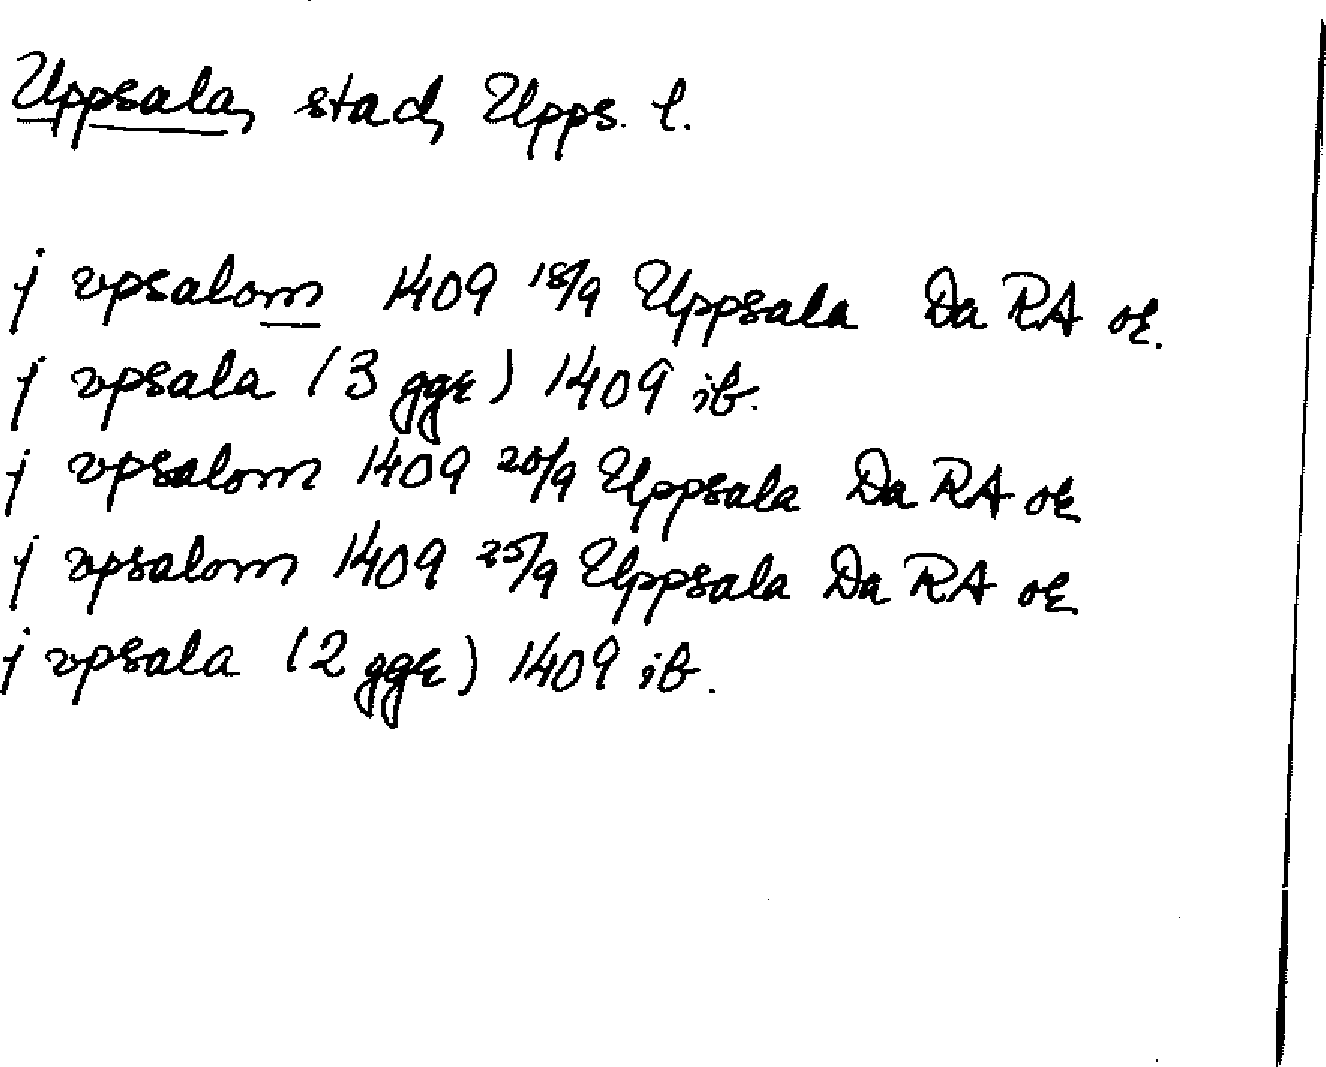 Uppsala, stad, Upps. l.
j vpsalom 1409 18/9 Uppsala Da RA or.
j vpsala (3 ggr) 1409 ib.
j vpsalom 1409 20/9 Uppsala Da RA or
j vpsalom 1409 25/9 Uppsala Da RA or
j vpsala (2 ggr) 1409 ib.